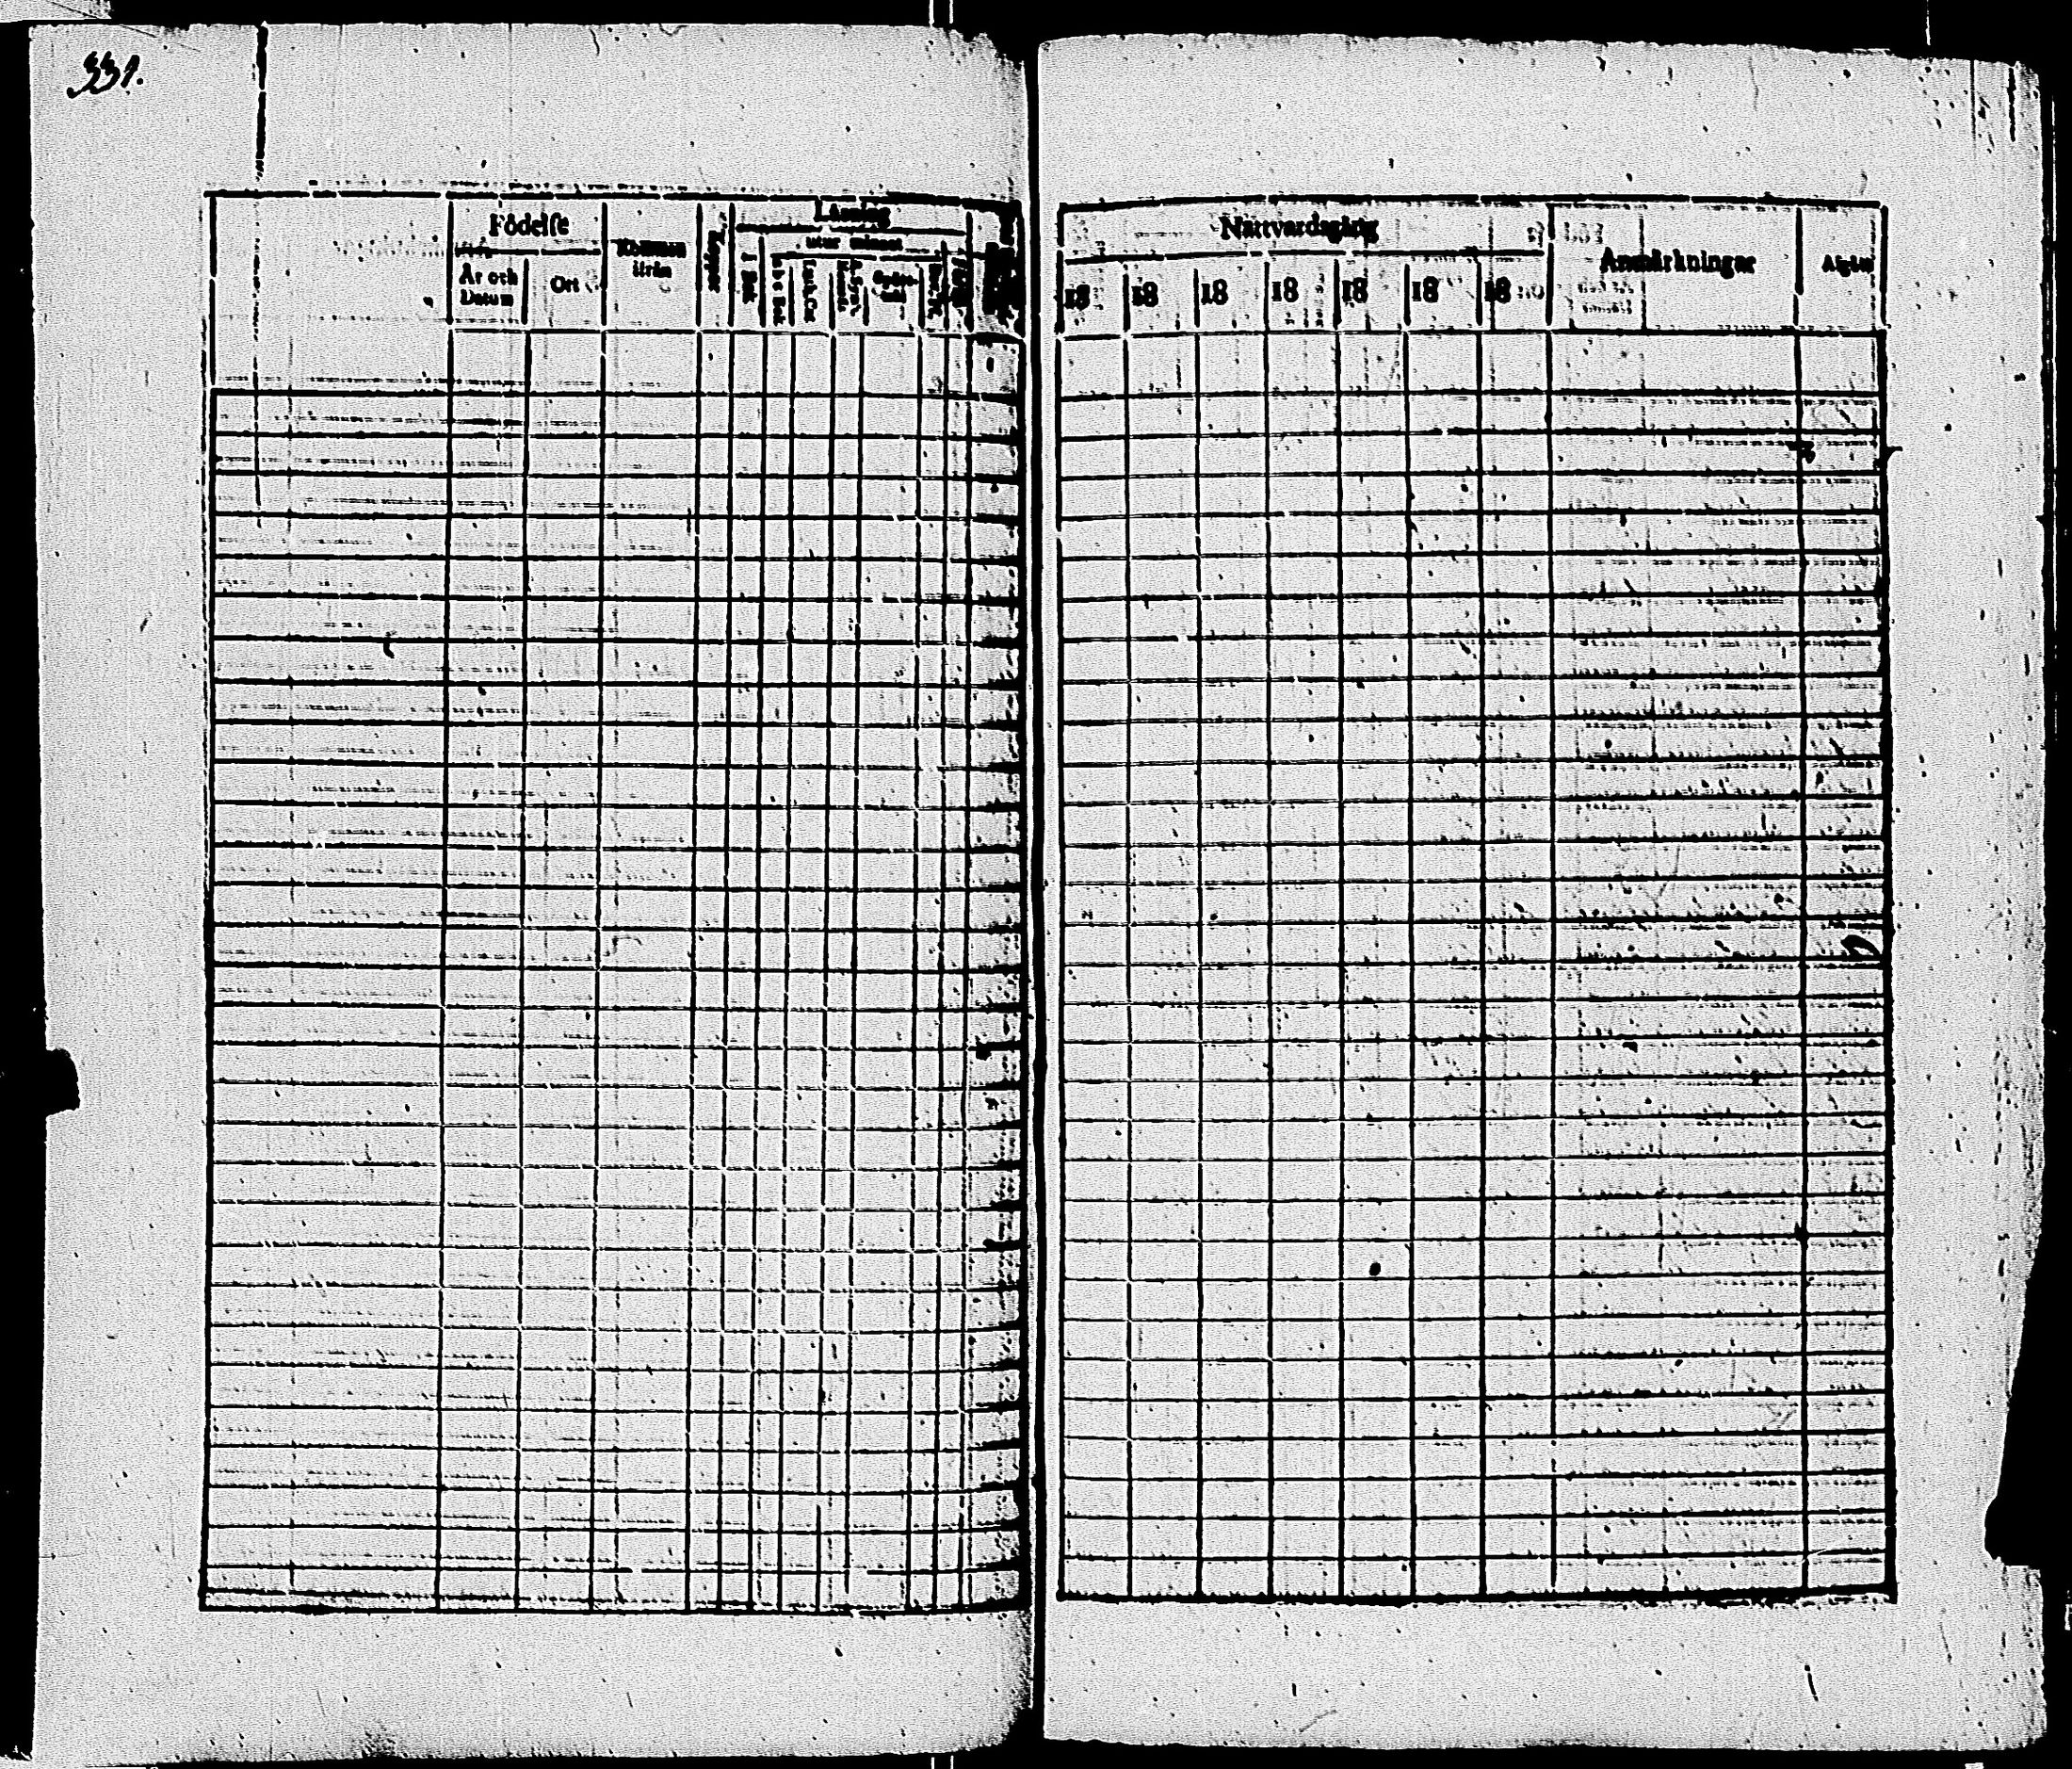 331.
Födelse
Läsning
Kommen ifrån
Koppor
utur minnet
År och Datum
Ort
I Bok
a b c Bok
Nattvardsgång
Anmärkningar
18 18 18 18 18 18 18